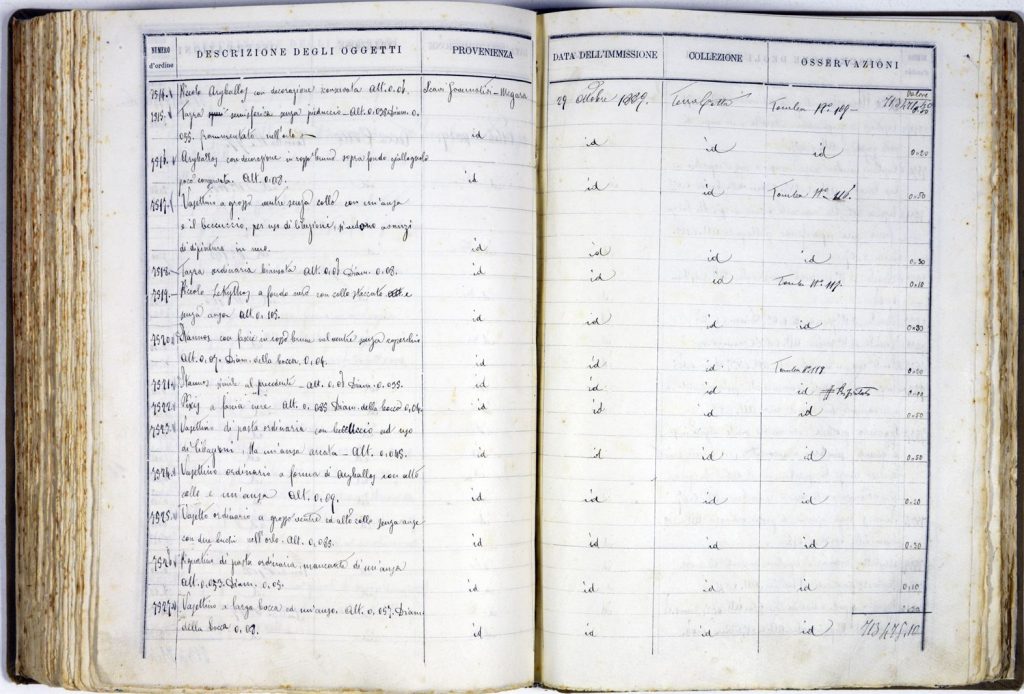 NUMERO d'ordine DESCRIZIONE DEGLI OGGETTI PROVENIENZA DATA DELL'IMMISSIONE COLLEZIONE OSSERVAZIONI
Valore
7514. Piccolo Aryballos con decorazione conservata Alt. 0.06. Scavi Giornalisti - Megara 29 Ottobre 1889. Terrecotte Tomba N.º 115 -
7515. Tazza semisferica senza piduccio - Alt. 0.038 Diam. 0.
055. frammentata nell'orlo - id id id id 0.20
7516. Aryballos con decorazione in rosso bruno sopra fondo giallognolo
poco conservata. Alt. 0.08. id id id Tomba N.º 116. 0.50
7517. Vasettino a grosso ventre senza collo con un'ansa
e il beccuccio, per uso di libazioni, si vedono avanzi
di dipinture in nero. id id id id 0.30
7518. Tazza ordinaria biansata Alt. 0.06 Diam. 0.08. id id id Tomba N.º 117. 0.10
7519. Piccolo Lekythos a fondo nero con collo staccato e
senza ansa Alt. 0.105. id id id id
7520. Stamnos con fascie in rosso bruno nel ventre senza coperchio
Alt. 0.07. Diam. della bocca 0.04. id id id. Tomba N.º 118 0.20
7521. Stamnos simile al precedente - Alt. 0.06 Diam. 0.035. id id id id
7522. Pixis a fascia nere Alt. 0.035 Diam. della bocca 0.04. id id id id 0.50
7523. Vasettino di pasta ordinaria con beccuccio ad uso
di libazioni, Ha un'ansa arcata - Alt. 0.045. id id id id 0.50
7524. Vasettino ordinario a forma di Aryballos con alto
collo e un'ansa Alt. 0.09. id id id id 0.20
7525. Vasetto ordinario a grosso ventre ed alto collo senza anse
con due buchi nell'orlo. Alt. 0.085. id id id id 0.30
7526. di pasta ordinaria, mancante di un'ansa
Alt. 0.033. Diam. 0.05. id id id id 0.10
7527. Vasettino a larga bocca ed un'ansa. Alt. 0.057. Diam.
della bocca 0.08. id id id id 713475.10